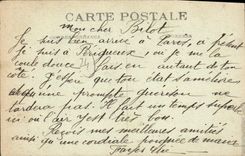 CARTE POSTALE
Mon cher Belot
Je suis bien arrivé à
Je suis à où je me la
coule douce fais en autant de ton
côté. J'espère que ton état s'améliore
et qu'une prompte guérison ne
tardera pas. Il fait un temps superbe
ici où l'air est très bon.
Reçois mes meilleures amitiés
ainsi qu'une cordiale poignée de main